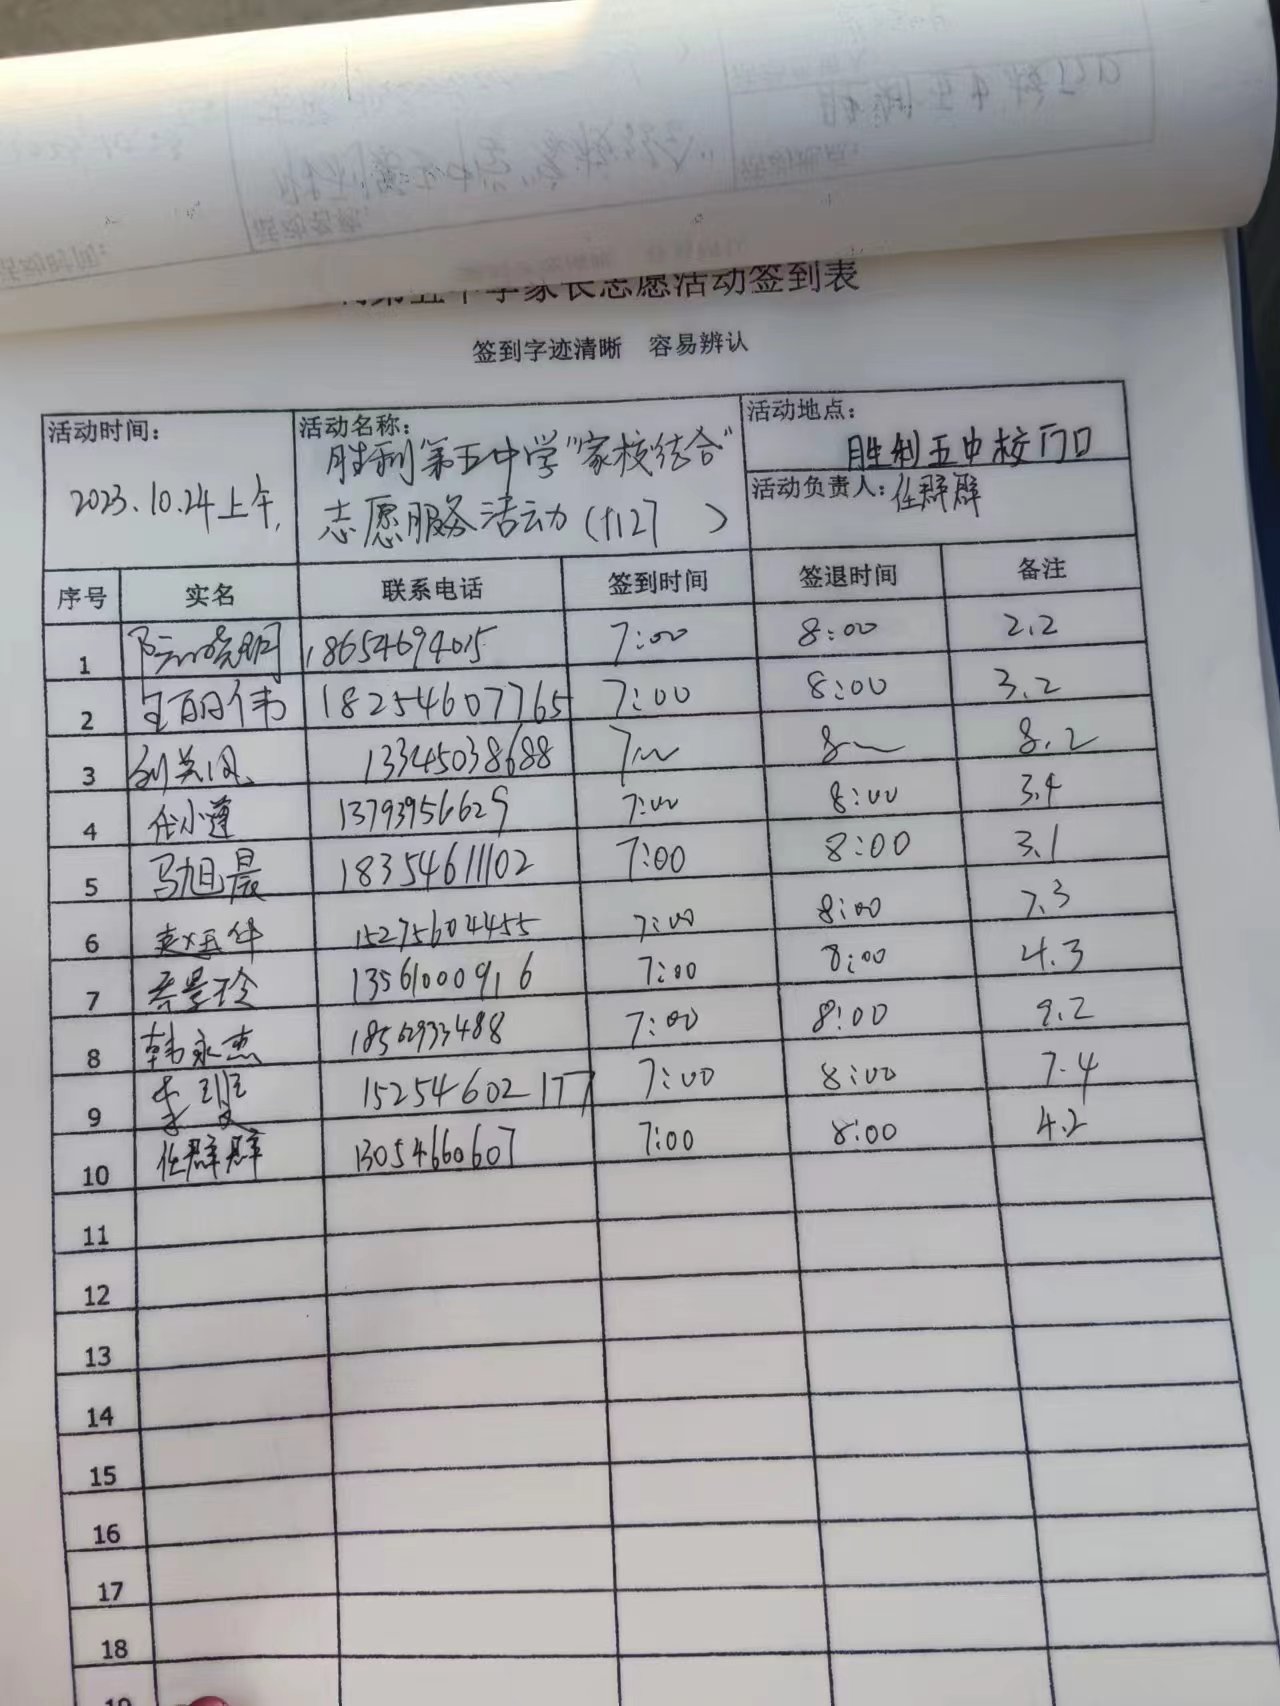 第五中学家长志愿活动签到表
签到字迹清晰 容易辨认
活动时间: 活动名称: 活动地点:
胜利第五中学"家校结合" 胜利五中校门口
2023.10.24上午 志愿服务活动( ) 活动负责人:任群群
序号 实名 联系电话 签到时间 签退时间 备注
1 18654694015 7:00 8:00 2.2
2 18254607765 7:00 8:00 3.2
3 13345038688 7 8 8.2
4 任小莲 13793956629 7:00 8:00 3.4
5 马旭晨 18354611102 7:00 8:00 3.1
6 15275604455 7:00 8:00 7.3
7 13561000916 7:00 8:00 4.3
8 韩永杰 18562933488 7:00 8:00 9.2
9 李 15254602177 7:00 8:00 7.4
10 任群群 13054660607 7:00 8:00 4.2
11
12
13
14
15
16
17
18
19